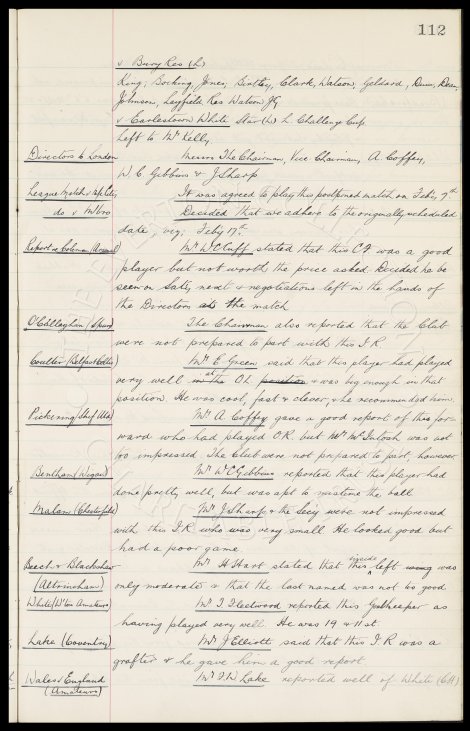 112
v Bury Res (h)
King; Bocking, Jones; Bentley, Clark, Watson, Geldard, Dunn, Dean,
Johnson, Leyfield. Res Watson JG
v Earlestown White Star (h) L. Challenge Cup
Left to Mr Kelly
Directors to London Messrs The Chairman, Vice Chairman, A. Coffey,
W. C. Gibbins & J. Sharp
League Match v It was agreed to play this postponed match on Feby 7th
do v M'bro Decided that we adhere to the originally scheduled
date, viz; Feby 17th
Report re Coleman (Arsenal) Mr W C Cuff stated that this C F was a good
player but not worth the price asked. Decided he be
seen on Satdy next & negotiations left in the hands of
the Directors at the match
O'Callaghan (Spurs) The Chairman also reported that the Club
were not prepared to part with this I R
Coulter (Belfast Celtic) Mr E Green said that this player had played
very well at OL position & was big enough in that
position. He was cool, fast & clever & he recommended him.
Pickering (Shef Utd) Mr A. Coffey gave a good report of this for-
ward who had played O.R. but Mr McIntosh was not
so impressed. The Club were not prepared to part, however.
Bentham (Wigan) Mr W C Gibbins reported that this player had
done pretty well, but was apt to mistime the ball
Malam (Chesterfield) Mr J Sharp & the Secy were not impressed
with this I.R who was very small. He looked good but
had a poor game.
Beech & Blackshaw Mr H Hart stated that this inside left was
(Altrincham) only moderate & that the last named was not so good
White (W'ton Amateurs) Mr T. Fleetwood reported this Goalkeeper as
having played very well. He was 19 & 11 st.
Lake (Coventry) Mr J Elliott said that this I R was a
grafter & he gave him a good report.
Wales v England Mr F.W Lake reported well of White (CH)
(Amateurs)